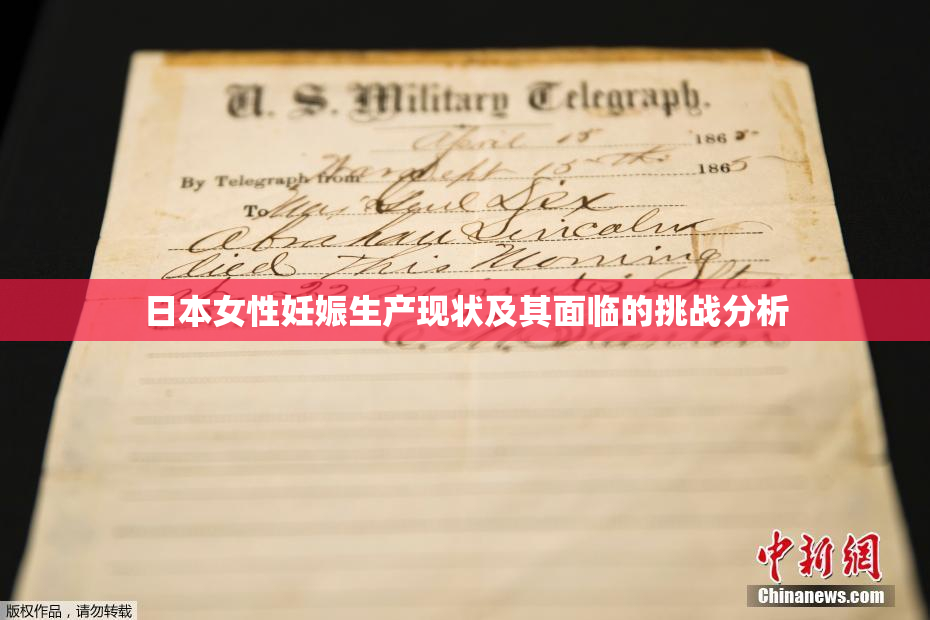 U. S. Military Telegraph.
April 15 1865
By Telegraph from War Dept 15th 1865
To Maj Genl Dix
Abraham Lincoln
died This Morning
22 minutes after
日本女性妊娠生产现状及其面临的挑战分析
E. M. Stanton
中新网
Chinanews.com
版权作品，请勿转载